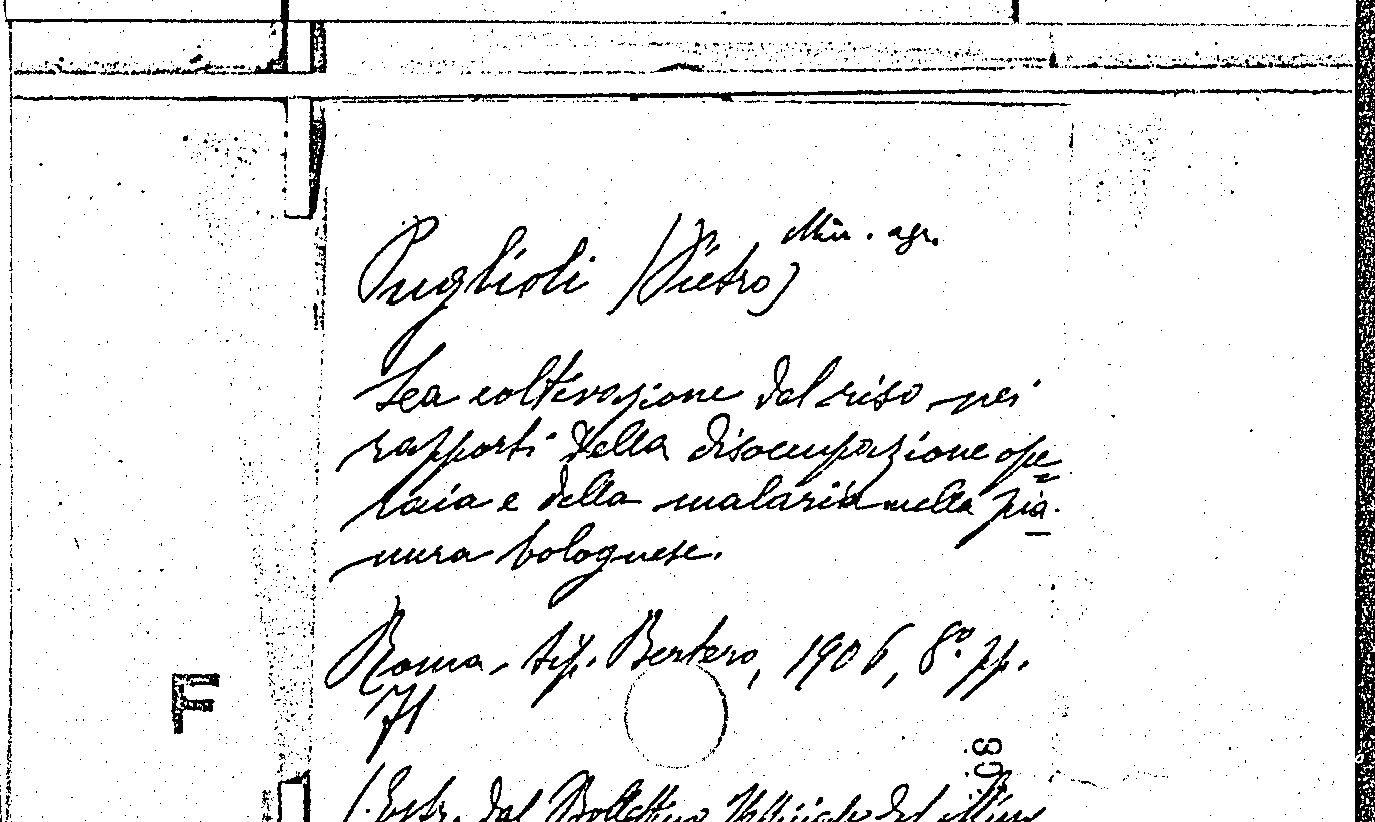 Min. agr.
Puglioli (Pietro)
La coltivazione del riso nei
rapporti della disoccupazione ope=
raia e della malaria nella pia-
nura bolognese.
Roma, tip. Bertero, 1906, 8º pp.
71
F
80
(Estr. dal Bollettino Ufficiale del Min